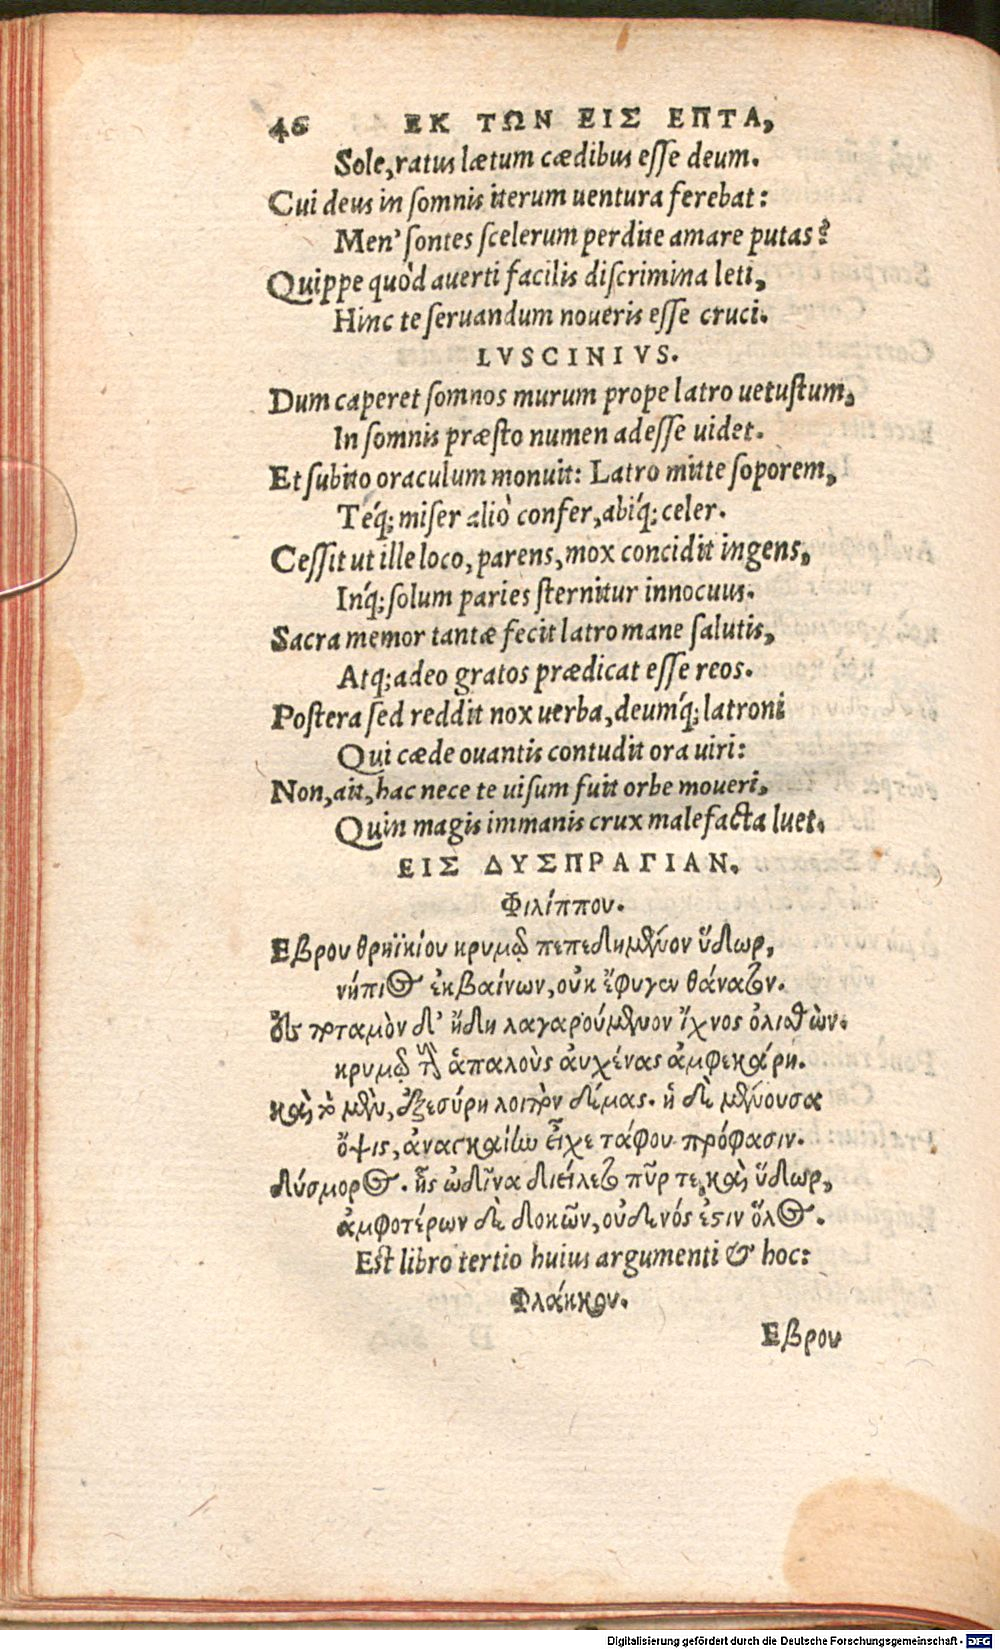 46 ΕΚ ΤΩΝ ΕΙΣ ΕΠΤΑ,
Sole, ratus lætum cædibus esse deum.
Cui deus in somnis iterum uentura ferebat:
Men' sontes scelerum perdite amare putas?
Quippe quòd auerti facilis discrimina leti,
Hinc te seruandum noueris esse cruci.
LVSCINIVS.
Dum caperet somnos murum prope latro uetustum,
In somnis præsto numen adesse uidet.
Et subito oraculum monuit: Latro mitte soporem,
Teq́; miser aliò confer, abiq́; celer.
Cessit ut ille loco, parens, mox concidit ingens,
Inq́; solum paries sternitur innocuus.
Sacra memor tantæ fecit latro mane salutis,
Atq; adeo gratos prædicat esse reos.
Postera sed reddit nox uerba, deumq́; latroni
Qui cæde ouantis contudit ora uiri:
Non, ait, hac nece te uisum fuit orbe moueri,
Quin magis immanis crux malefacta luet.
ΕΙΣ ΔΥΣΠΡΑΓΙΑΝ.
Φιλίππου.
Εβρου θρηϊκίου κρυμῷ πεπεδημένον ὕδωρ,
νήπιος ἐκβαίνων, οὐκ ἔφυγεν θάνατον.
ἐς ποταμὸν δ' ἤδη λαγαρούμενον ἴχνος ὀλισθὼν.
κρυμῷ τοὺς ἁπαλοὺς αὐχένας ἀμφεκάρη.
καὶ τὸ μὲν, ἐξεσύρη λοιπὸν δέμας. ἡ δὲ μένουσα
ὄψις, ἀναγκαίω εἶχε τάφου πρόφασιν.
δύσμορος. ἧς ὠδῖνα διείλετο πῦρ τε, καὶ ὕδωρ,
ἀμφοτέρων δὲ δοκῶν, οὐδενός ἐστιν ὅλος.
Est libro tertio huius argumenti & hoc:
Φλάκκου.
Εβρου
Digitalisierung gefördert durch die Deutsche Forschungsgemeinschaft - DFG